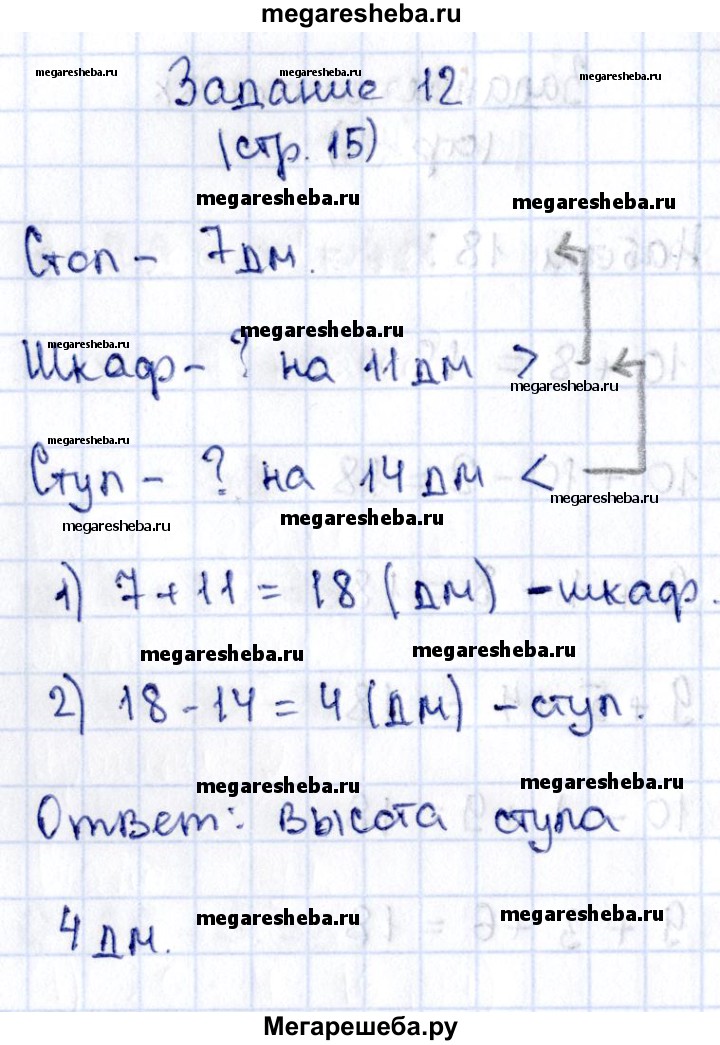 megaresheba.ru
megaresheba.ru megaresheba.ru megaresheba.ru
Задание 12
(стр. 15)
megaresheba.ru megaresheba.ru
Стол - 7 дм.
megaresheba.ru megaresheba.ru
Шкаф - ? на 11 дм >
megaresheba.ru
megaresheba.ru
Стул - ? на 14 дм <
megaresheba.ru megaresheba.ru megaresheba.ru
1) 7 + 11 = 18 (дм) - шкаф.
megaresheba.ru megaresheba.ru
2) 18 - 14 = 4 (дм) - стул.
megaresheba.ru megaresheba.ru
Ответ: высота стула
4 дм. megaresheba.ru megaresheba.ru
Мегарешеба.ру